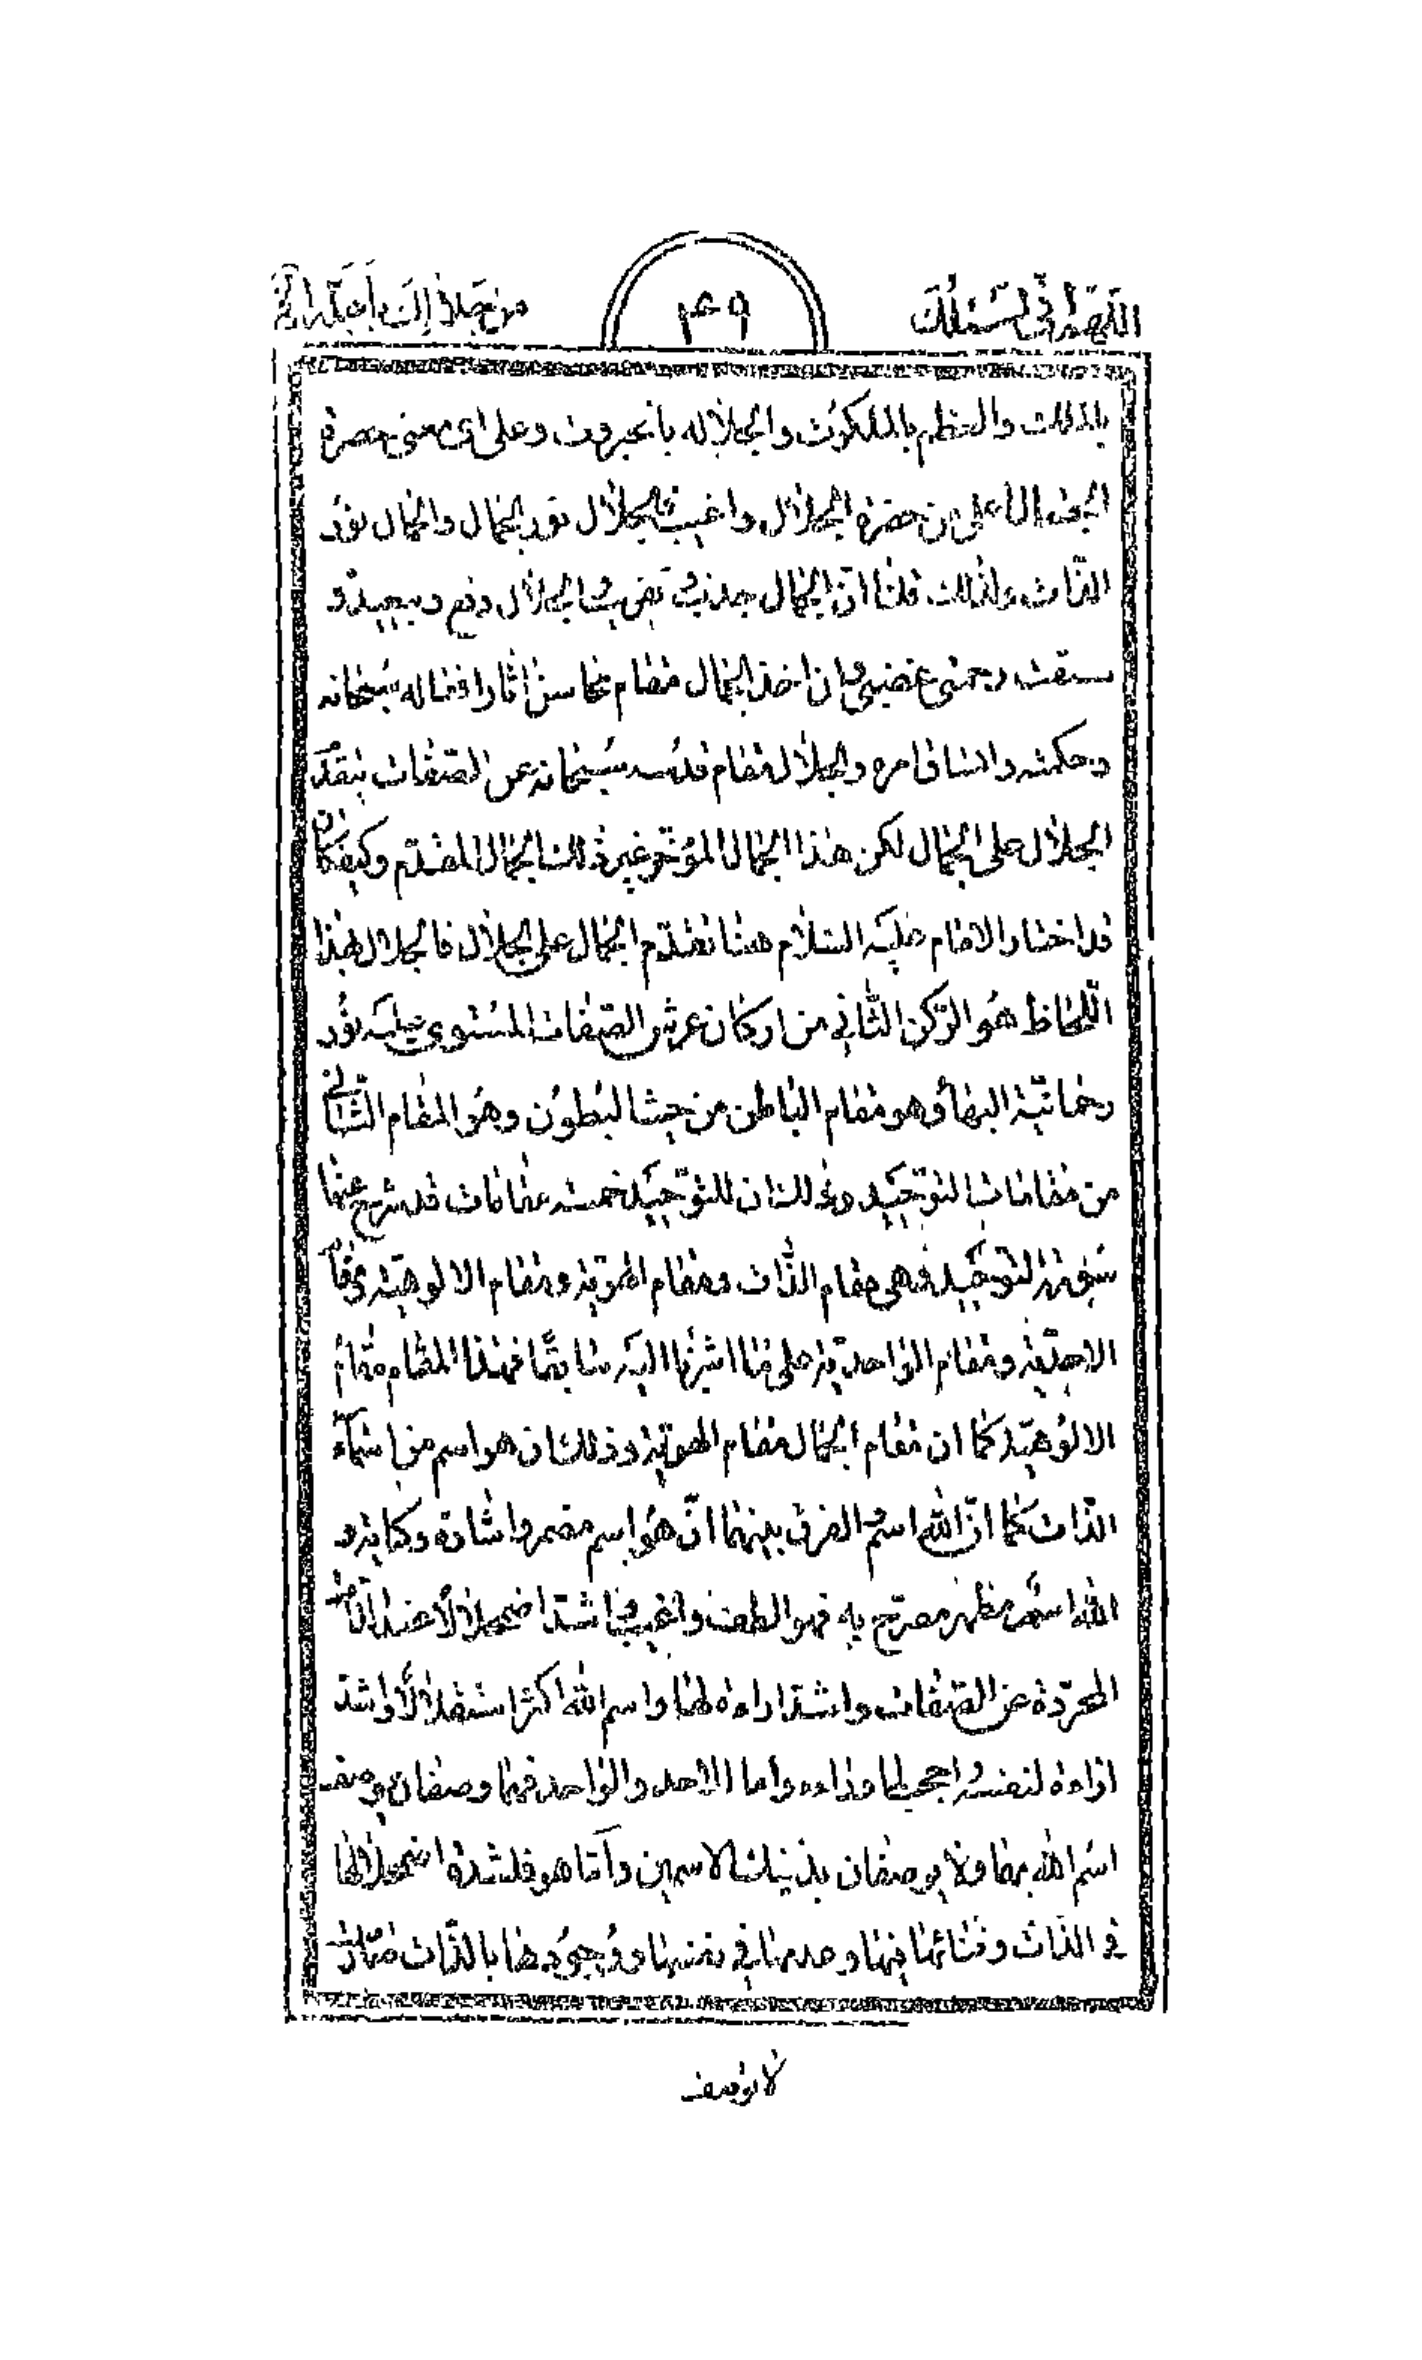 اللّهمّ إنّي أسئلك
من جلالك بأجلّه
١٤٩
بالملك والعظم بالملكوت والجلالة بالجبروت وعلى اى معنى حضرة
الجمال اعلى من حضرة الجلال واغيب الجلال نور الجمال والجمال نور
الذّات ولذلك قلنا انّ الجمال جذب وتقريب والجلال دفع وتبعيد و
سبقت رحمتى غضبى وان اخذ الجمال مقام محاسن اثار افعاله سبحانه
وحكمته واتساق امره والجلال مقام قدسه سبحانه عن الصّفات يتقدّم
الجلال على الجمال لكن هذا الجمال المؤخّر غير ذلك الجمال المقدّم وكيف كان
قد اختار الامام عليه السّلام هنا تقدّم الجمال على الجلال فالجلال بهذا
اللّحاظ هو الرّكن الثّاني من اركان عرش الصّفات المستوى عليه نور
رحمانيّة البهاء وهو مقام الباطن من حيث البطون وهو المقام الثّاني
من مقامات التوحيد وذلك ان للتوحيد خمسة مقامات قد شرح عنها
سفينة التوحيد فهى مقام الذّات ومقام الهويّة ومقام الالوهيّة ومقام
الاحديّة ومقام الواحديّة على ما اشرنا اليه سابقًا فهذا المقام مقام
الالوهيّة كما ان مقام الجمال مقام الهويّة وذلك ان هو اسم من اسماء
الذّات كما انّ الله اسم والفرق بينهما انّ هو اسم مضمر واشارة وكناية و
الله اسم مظهر مصرّح به فهو الطف واغيب واشدّ اضمحلالًا عند الذّات
المجرّدة عن الصّفات واشدّ اراءة لها واسم الله اكثر استقلالًا واشدّ
اراءة لنفسه واحجب لما وراءه واما الاحد والواحد فهما وصفان يوصف
اسم الله بهما ولا يوصفان بذينك الاسمين وأمّا هو فلشدّة اضمحلالها
في الذّات وفنائها فيها وعدمها في نفسها ووجودها بالذّات صارت
لا توصف